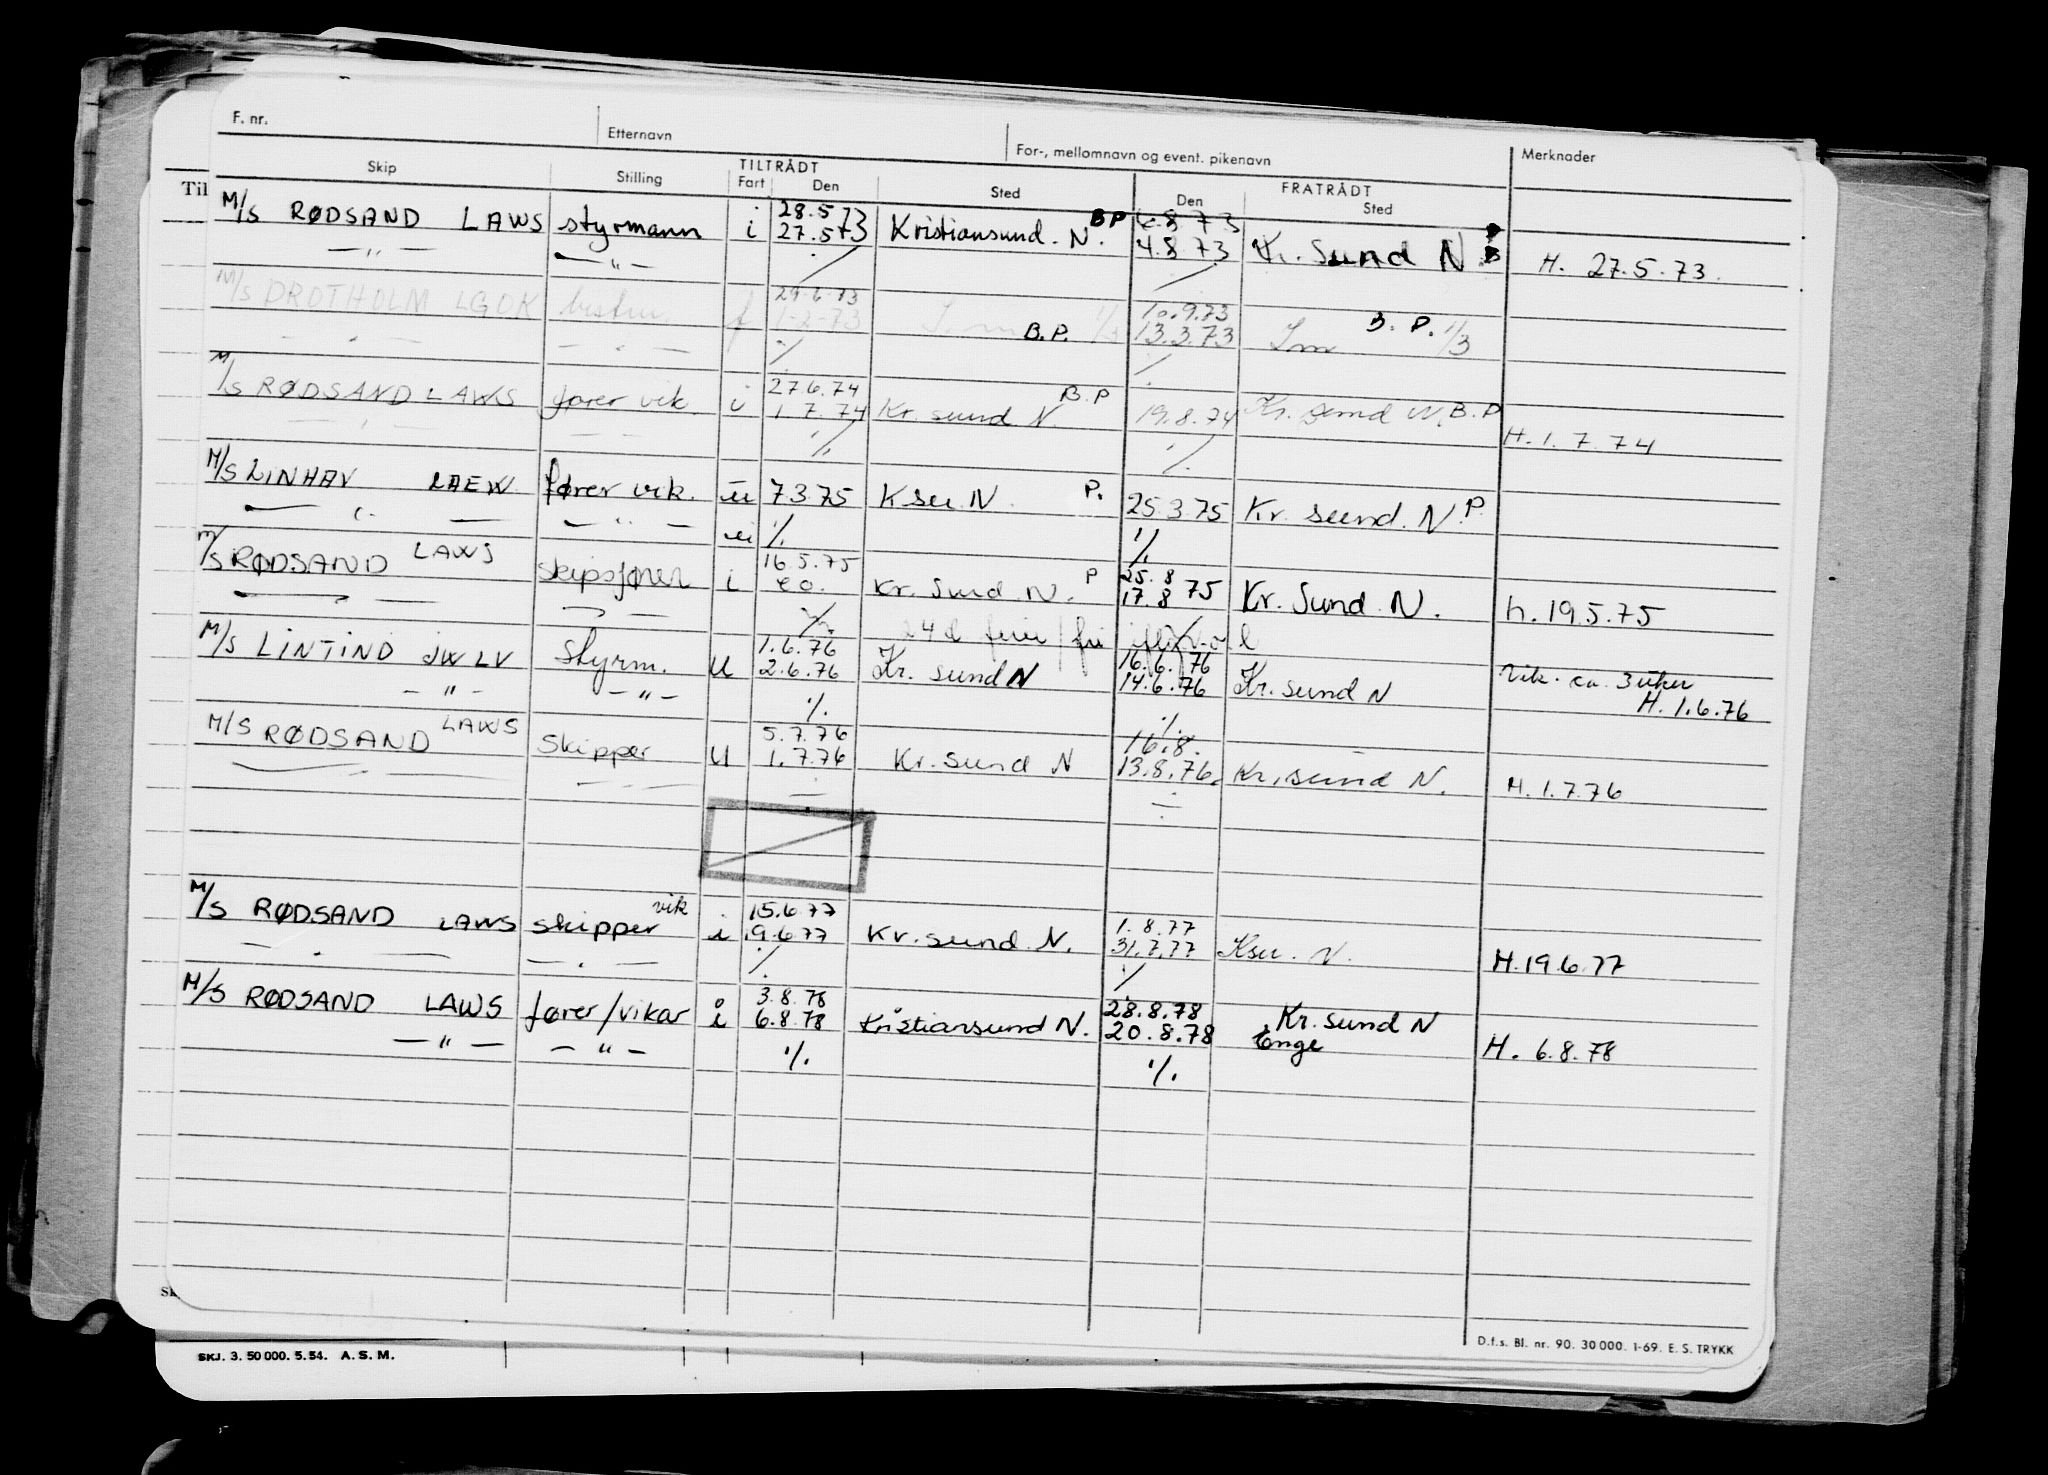 F. nr. Etternavn For-, mellomnavn og event. pikenavn Merknader
TILTRÅDT FRATRÅDT
Skip Stilling Fart Den Sted Den Sted
Til
28.5.73 BP 6.8.73
M/S RØDSAND LAWS styrmann i 27.5.73 Kristiansund. N. 4.8.73 Kr. Sund N H. 27.5.73.
— " — — " —
29-6-73 10.9.73 B. P.
M/S DROTHOLM LGOK f 1-2-73 B.P. 1/3 13.3.73 Im 1/3
27.6.74 B.P
M/S RØDSAND LAWS fører vik. i 1.7.74 Kr. sund N. 19.8.74 Kr. sund N. B.P H. 1.7.74
M/S LINHAV LAEW. fører vik. u 7.3.75 Ksu. N. P. 25.3.75 Kr. sund. N. P.
— " — — " —
16.5.75 25.8
M/S RØDSAND LAWS skipsfører i Kr. Sund. N. P 17.8 75 Kr. Sund. N. h. 19.5.75
24 d ferie / fri
1.6.76 16.6.76 Vik. ca. 3 uker
M/S LINTIND JWLV styrm. U 2.6.76 Kr. sund N 14.6.76 Kr. sund N H. 1.6.76
— " — — " — %
5.7.76 16.8.
M/S RØDSAND LAWS skipper U 1.7.76 Kr. sund N 13.8.76. Kr. sund N. H. 1.7.76
15.6.77 1.8.77
M/S RØDSAND LAWS skipper vik i 19.6.77 Kr. sund. N. 31.7.77 Ksu. N. H. 19.6.77
3.8.78 28.8.78 Kr. sund N
M/S RØDSAND LAWS fører/vikar i 6.8.78 Kristiansund N. 20.8.78 Enge H. 6.8.78
— " — — " — % %
D.f.s. Bl. nr. 90. 30 000. 1-69. E. S. TRYKK
SKJ. 3. 50 000. 5. 54. A. S. M.